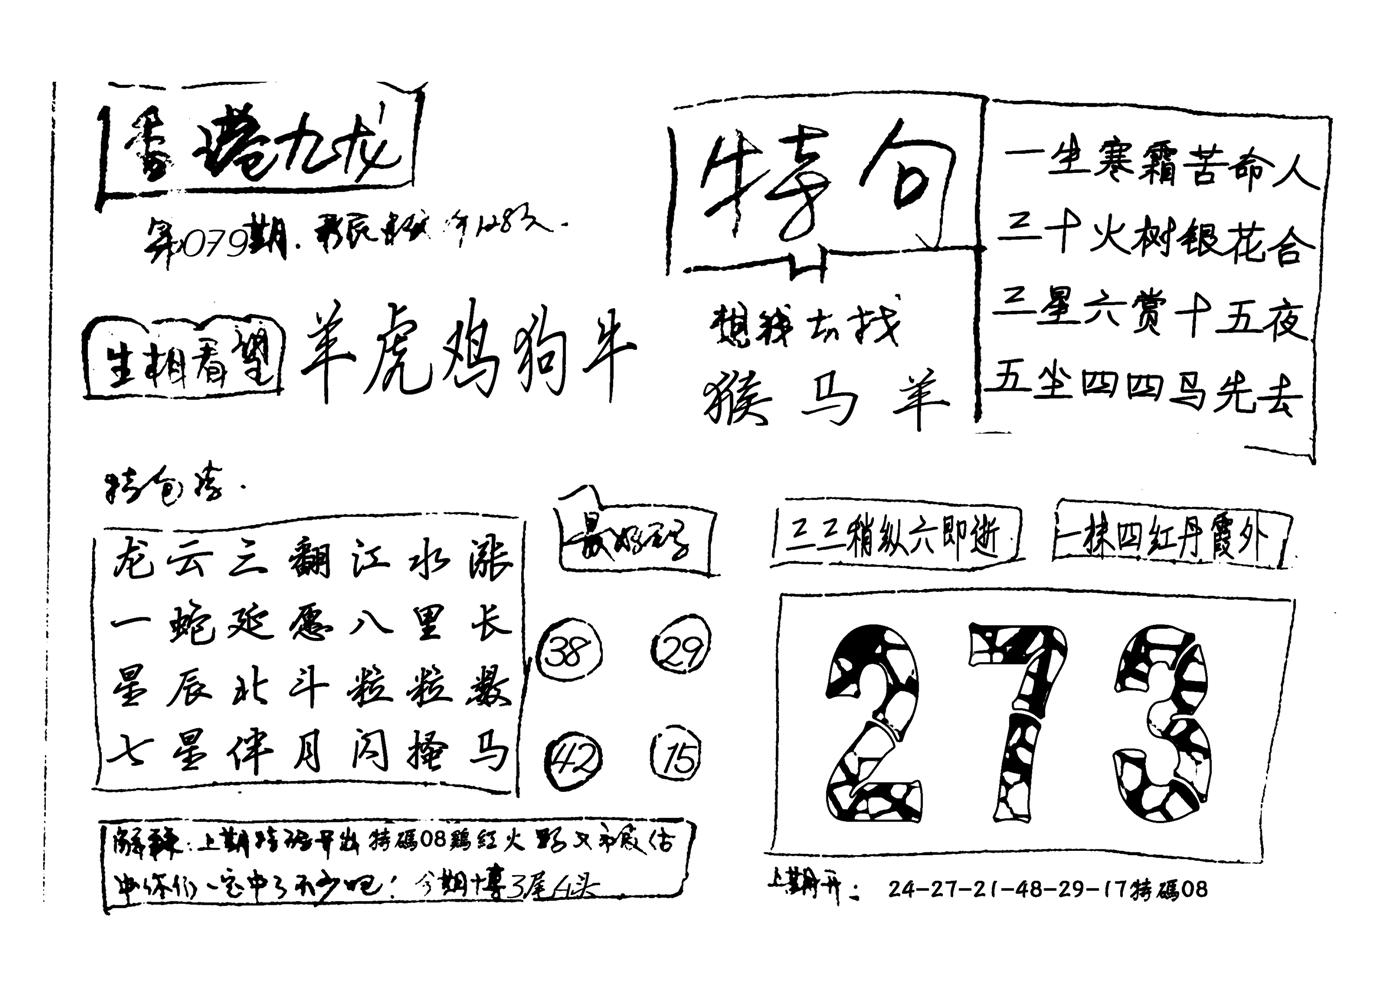 香港九龙
第079期.
生相看望
羊虎鸡狗牛
特句
想钱去找
猴马羊
一生寒霜苦命人
三十火树银花合
三星六赏十五夜
五坐四四鸟先去
特包诗.
龙云三翻江水涨
一蛇延愿八里长
星辰北斗粒粒数
七星伴月闪掩马
最好玄号
38 29
42 15
三三稍纵六即逝
一抹四红丹霞外
273
解释:上期特码开出特碼08鷄红火
你们一定中了不少吧!今期博3尾4头
上期开: 24-27-21-48-29-17特碼08